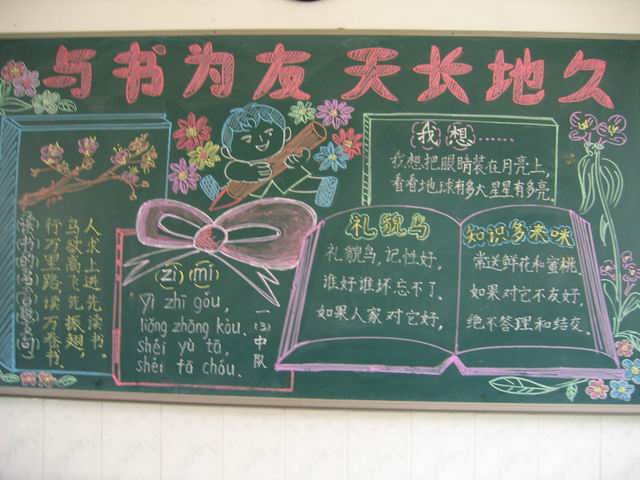 与书为友 天长地久
我想……
我想把眼睛装在月亮上,
看看地球有多大星星有多亮.
礼貌鸟
礼貌鸟,记性好,
谁好谁坏忘不了.
如果人家对它好,
知识多来咪
常送鲜花和蜜桃.
如果对它不友好,
绝不答理和结交.
(zì) (mí)
Yì zhī gǒu,
liǎng zhāng kǒu.
shéi yù tā,
shéi tā chóu.
一(3)中队
人求上进先读书.
鸟欲高飞先振翅,
行万里路,读万卷书.
读书的名言警句